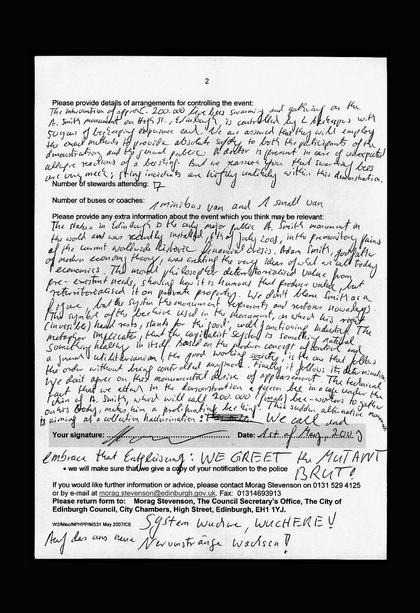 2
Please provide details of arrangements for controlling the event:
The intervention of approx. 200.000 live bees swarming and gathering on the
A. Smith monument on High St., Edinburgh, is controlled by 2 beekeepers with
50 years of beekeeping experience each. We are assured that they will employ
the exact methods to provide absolute safety to both the participants of the
demonstration and the general public. A doctor is present in case of unexpected
allergic reactions of a beesting. But we reassure you that swarming bees
are very meek; sting incidents are highly unlikely within this demonstration.
Number of stewards attending: 17
Number of buses or coaches: 1 minibus van and 1 small van
Please provide any extra information about the event which you think may be relevant:
The statue in Edinburgh is the only major public A. Smith monument in
the world and was recently installed, 4th of July 2008, in the premonitory pains
of the current worldwide historic financial crisis. Adam Smith, godfather
of modern economic theory, was creating the very ideas of what we call today
economics. The moral philosopher deterritorialised value from
pre-existent needs, showing how it is humans that produce value, but
reterritorialised it on private property. We don't blame Smith as a
figure, but the system the monument represents and restores nowadays.
The symbol of the beehive used in the monument, on which his
(invisible) hand rests, stands for the good, well functioning industry. The
metaphor implicates, that the capitalist system is something natural
something healthy in itself. Based on the modern concept of control and
a sound utilitarianism, the good working society, is the one that follows
the order without being controlled anymore. Finally it follows its determination
by
fact that we
chin of A. Smith, which will call 200.000 bee-workers to gather
on his body, makes him a proliferating bee king. This sudden alternative
is aiming at a collective hallucination: We call and
Your signature: Date: 1st of May, 2009
embrace that Entgleisung: WE GREET the MUTANT
BRUT!
• we will make sure that we give a copy of your notification to the police
If you would like further information or advice, please contact Morag Stevenson on 0131 529 4125
or by e-mail at morag.stevenson@edinburgh.gov.uk. Fax: 01314693913
Please return form to: Morag Stevenson, The Council Secretary's Office, The City of
Edinburgh Council, City Chambers, High Street, Edinburgh, EH1 1YJ.
System wuchre, WUCHERE!
W2/Misc/NPHPP/MS31 May 2007/CE
Auf das uns neue Nervenstränge wachsen!